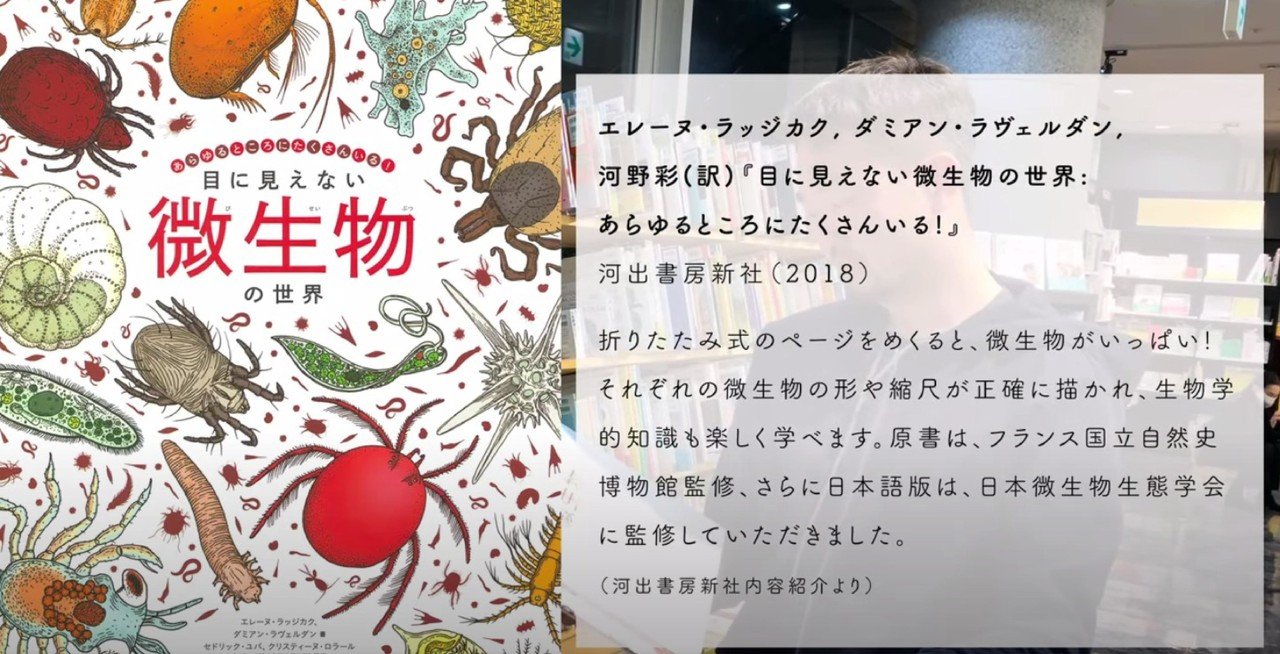 あらゆるところにたくさんいる!
目に見えない
微生物
び せい ぶつ
の世界
エレーヌ・ラッジカク、
ダミアン・ラヴェルダン 著
セドリック・ユバ、クリスティーヌ・ロラール
エレーヌ・ラッジカク, ダミアン・ラヴェルダン,
河野彩(訳)『目に見えない微生物の世界:
あらゆるところにたくさんいる!』
河出書房新社(2018)
折りたたみ式のページをめくると、微生物がいっぱい!
それぞれの微生物の形や縮尺が正確に描かれ、生物学
的知識も楽しく学べます。原書は、フランス国立自然史
博物館監修、さらに日本語版は、日本微生物生態学会
に監修していただきました。
(河出書房新社内容紹介より)